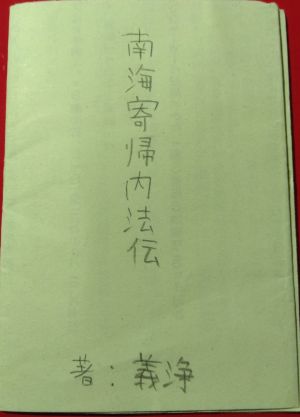 南海寄帰内法伝
著：義浄